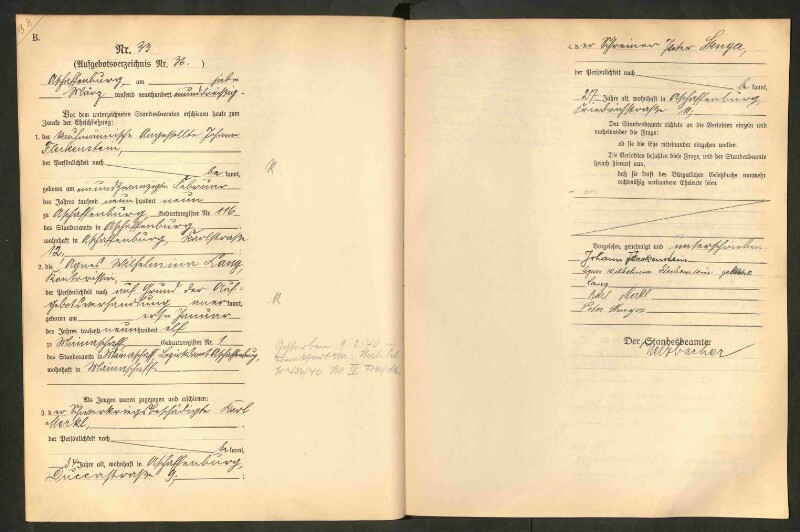 B.
Nr. 33
(Aufgebotsverzeichnis Nr. 36. )
Aschaffenburg, am
März tausend neunhundert neununddreißig.
Vor dem unterzeichneten Standesbeamten erschienen heute zum
Zwecke der Eheschließung:
1. der kaufmännische Angestellte Johann
Fleckenstein,
der Persönlichkeit nach
be kannt,
geboren am neunundzwanzigsten Februar
des Jahres tausend neun hundert neun
zu Aschaffenburg, Geburtsregister Nr. 116
des Standesamts in Aschaffenburg
wohnhaft in Aschaffenburg, Karlstraße
12,
2. die Agnes Wilhelmina Lang,
Kontoristin,
der Persönlichkeit nach auf Grund der Auf-
gebotsverhandlung anerkannt,
geboren am ersten Januar
des Jahres tausend neunhundert elf
zu Mainaschaff, Geburtsregister Nr. 1
des Standesamts in Mainaschaff, Bezirksamt Aschaffenburg,
wohnhaft in Mainaschaff.
Als Zeugen waren zugezogen und erschienen:
3. der Schwerkriegsbeschädigte Karl
Merkl,
der Persönlichkeit nach
be kannt,
Jahre alt, wohnhaft in Aschaffenburg,
Duccastraße 9,
;
Gestorben 9.2.40
Frankfurt
4. der Schreiner Peter
der Persönlichkeit nach
be kannt,
27 Jahre alt, wohnhaft in Aschaffenburg,
Friedrichstraße
Der Standesbeamte richtete an die Verlobten einzeln und
nacheinander die Frage:
ob sie die Ehe miteinander eingehen wollen.
Die Verlobten bejahten diese Frage, und der Standesbeamte
sprach hierauf aus,
daß sie kraft des Bürgerlichen Gesetzbuchs nunmehr
rechtmäßig verbundene Eheleute seien
Vorgelesen, genehmigt und unterschrieben.
Johann Fleckenstein
Agnes Wilhelmina Fleckenstein geborene
Lang
Karl Merkl
Peter
Der Standesbeamte: